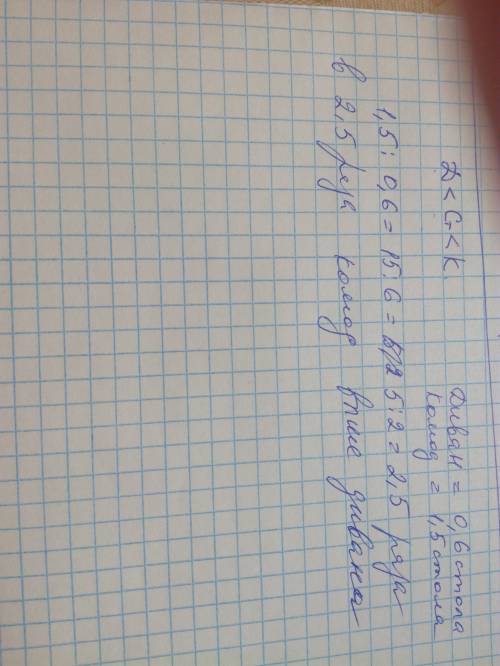 Диван = 0,6 стола
Комод = 1,5 стола
D < Ст < К.
1,5 : 0,6 = 15 : 6 = 5 : 2 = 2,5 раза
в 2,5 раза комод выше дивана